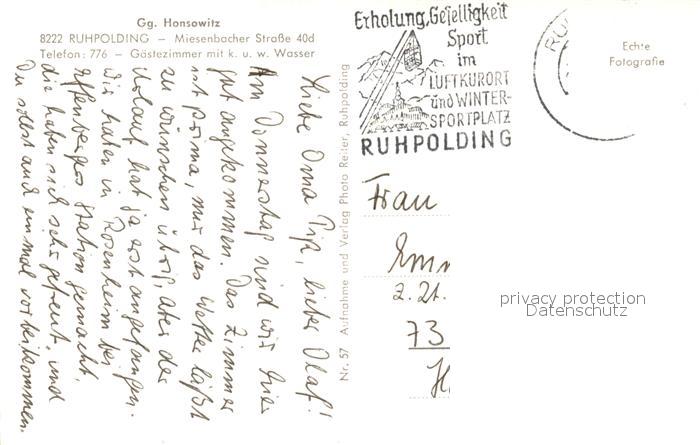 Gg. Honsowitz
8222 RUHPOLDING — Miesenbacher Straße 40d
Telefon: 776 — Gästezimmer mit k. u. w. Wasser
Liebe Oma, lieber Olaf!
Am Donnerstag sind wir hier
gut angekommen. Das Zimmer
ist prima, nur das Wetter läßt
zu wünschen übrig, aber der
Urlaub hat ja erst angefangen.
Wir haben in Rosenheim bei
Effenbergers Station gemacht,
die haben sich sehr gefreut, und
Du sollst auch einmal vorbeikommen.
Nr. 57 Aufnahme und Verlag Photo Reiter, Ruhpolding
Erholung, Geselligkeit
Sport
im
LUFTKURORT
und WINTER-
SPORTPLATZ
RUHPOLDING
RU
Echte
Fotografie
Frau
Emm
z. Zt.
73
privacy protection
Datenschutz